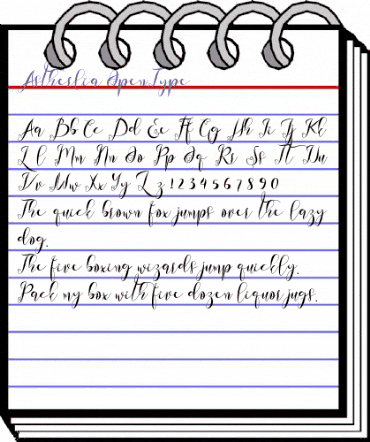 Astheslia OpenType
Aa Bb Cc Dd Ee Ff Gg Hh Ii Jj Kk
Ll Mm Nn Oo Pp Qq Rr Ss Tt Uu
Vv Ww Xx Yy Zz !234567890
The quick brown fox jumps over the lazy
dog.
The five boxing wizards jump quickly.
Pack my box with five dozen liquor jugs.